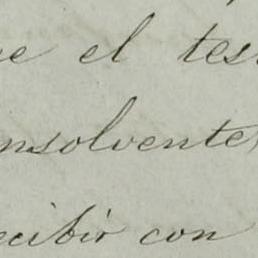 e el tes
nsolvente
ecibir con